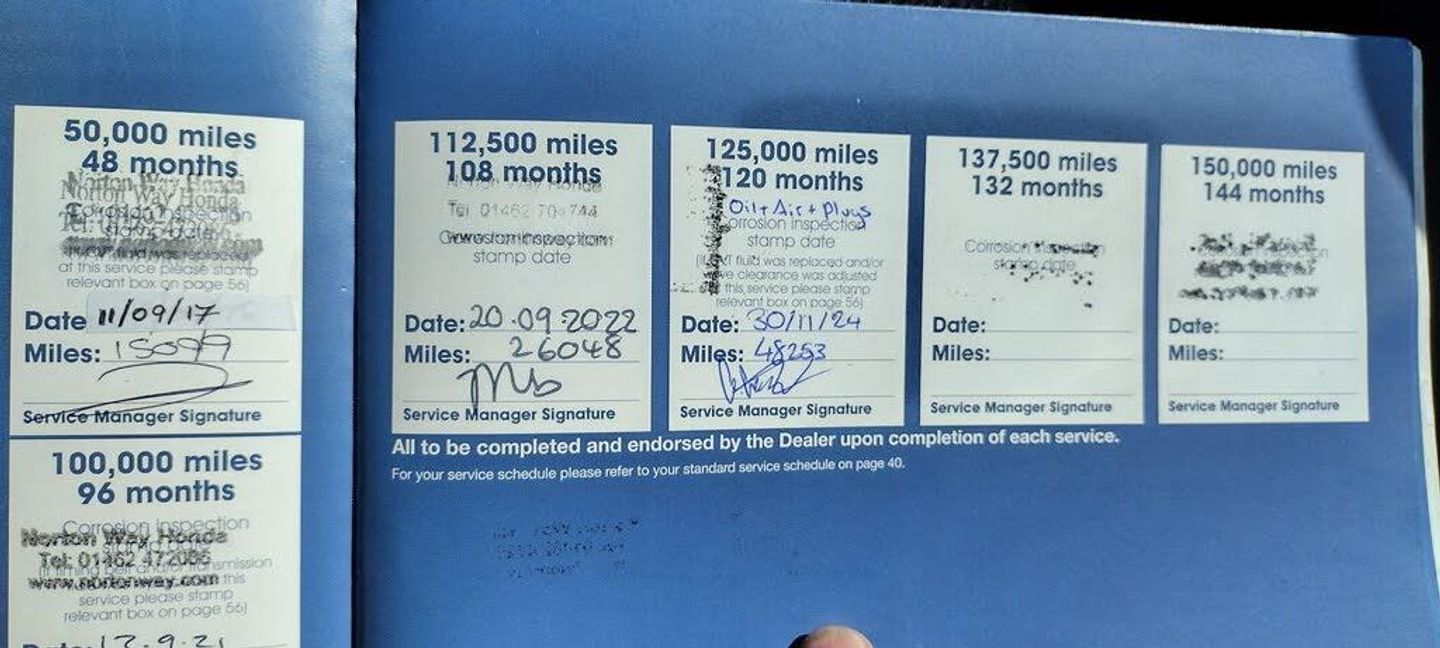 50,000 miles
48 months
Norton Way Honda
Norton Way Honda
Corrosion inspection
stamp date
at this service please stamp
relevant box on page 56)
Date 11/09/17
Miles: 15099
Service Manager Signature
100,000 miles
96 months
Corrosion inspection
Norton Way Honda
Tel: 01462 472086
www.nortonway.com this
service please stamp
relevant box on page 56)
Date: 17.9.21
112,500 miles
108 months
Norton Way Honda
Tel 01462 704744
Corrosion inspection
stamp date
Date: 20.09.2022
Miles: 26048
Service Manager Signature
125,000 miles
120 months
Oil + Air + Plugs
orrosion inspection
stamp date
fluid was replaced and/or
clearance was adjusted
this service please stamp
relevant box on page 56)
Date: 30/11/24
Miles: 48253
Service Manager Signature
137,500 miles
132 months
Corrosion inspection
stamp date
Date:
Miles:
Service Manager Signature
150,000 miles
144 months
Date:
Miles:
Service Manager Signature
All to be completed and endorsed by the Dealer upon completion of each service.
For your service schedule please refer to your standard service schedule on page 40.